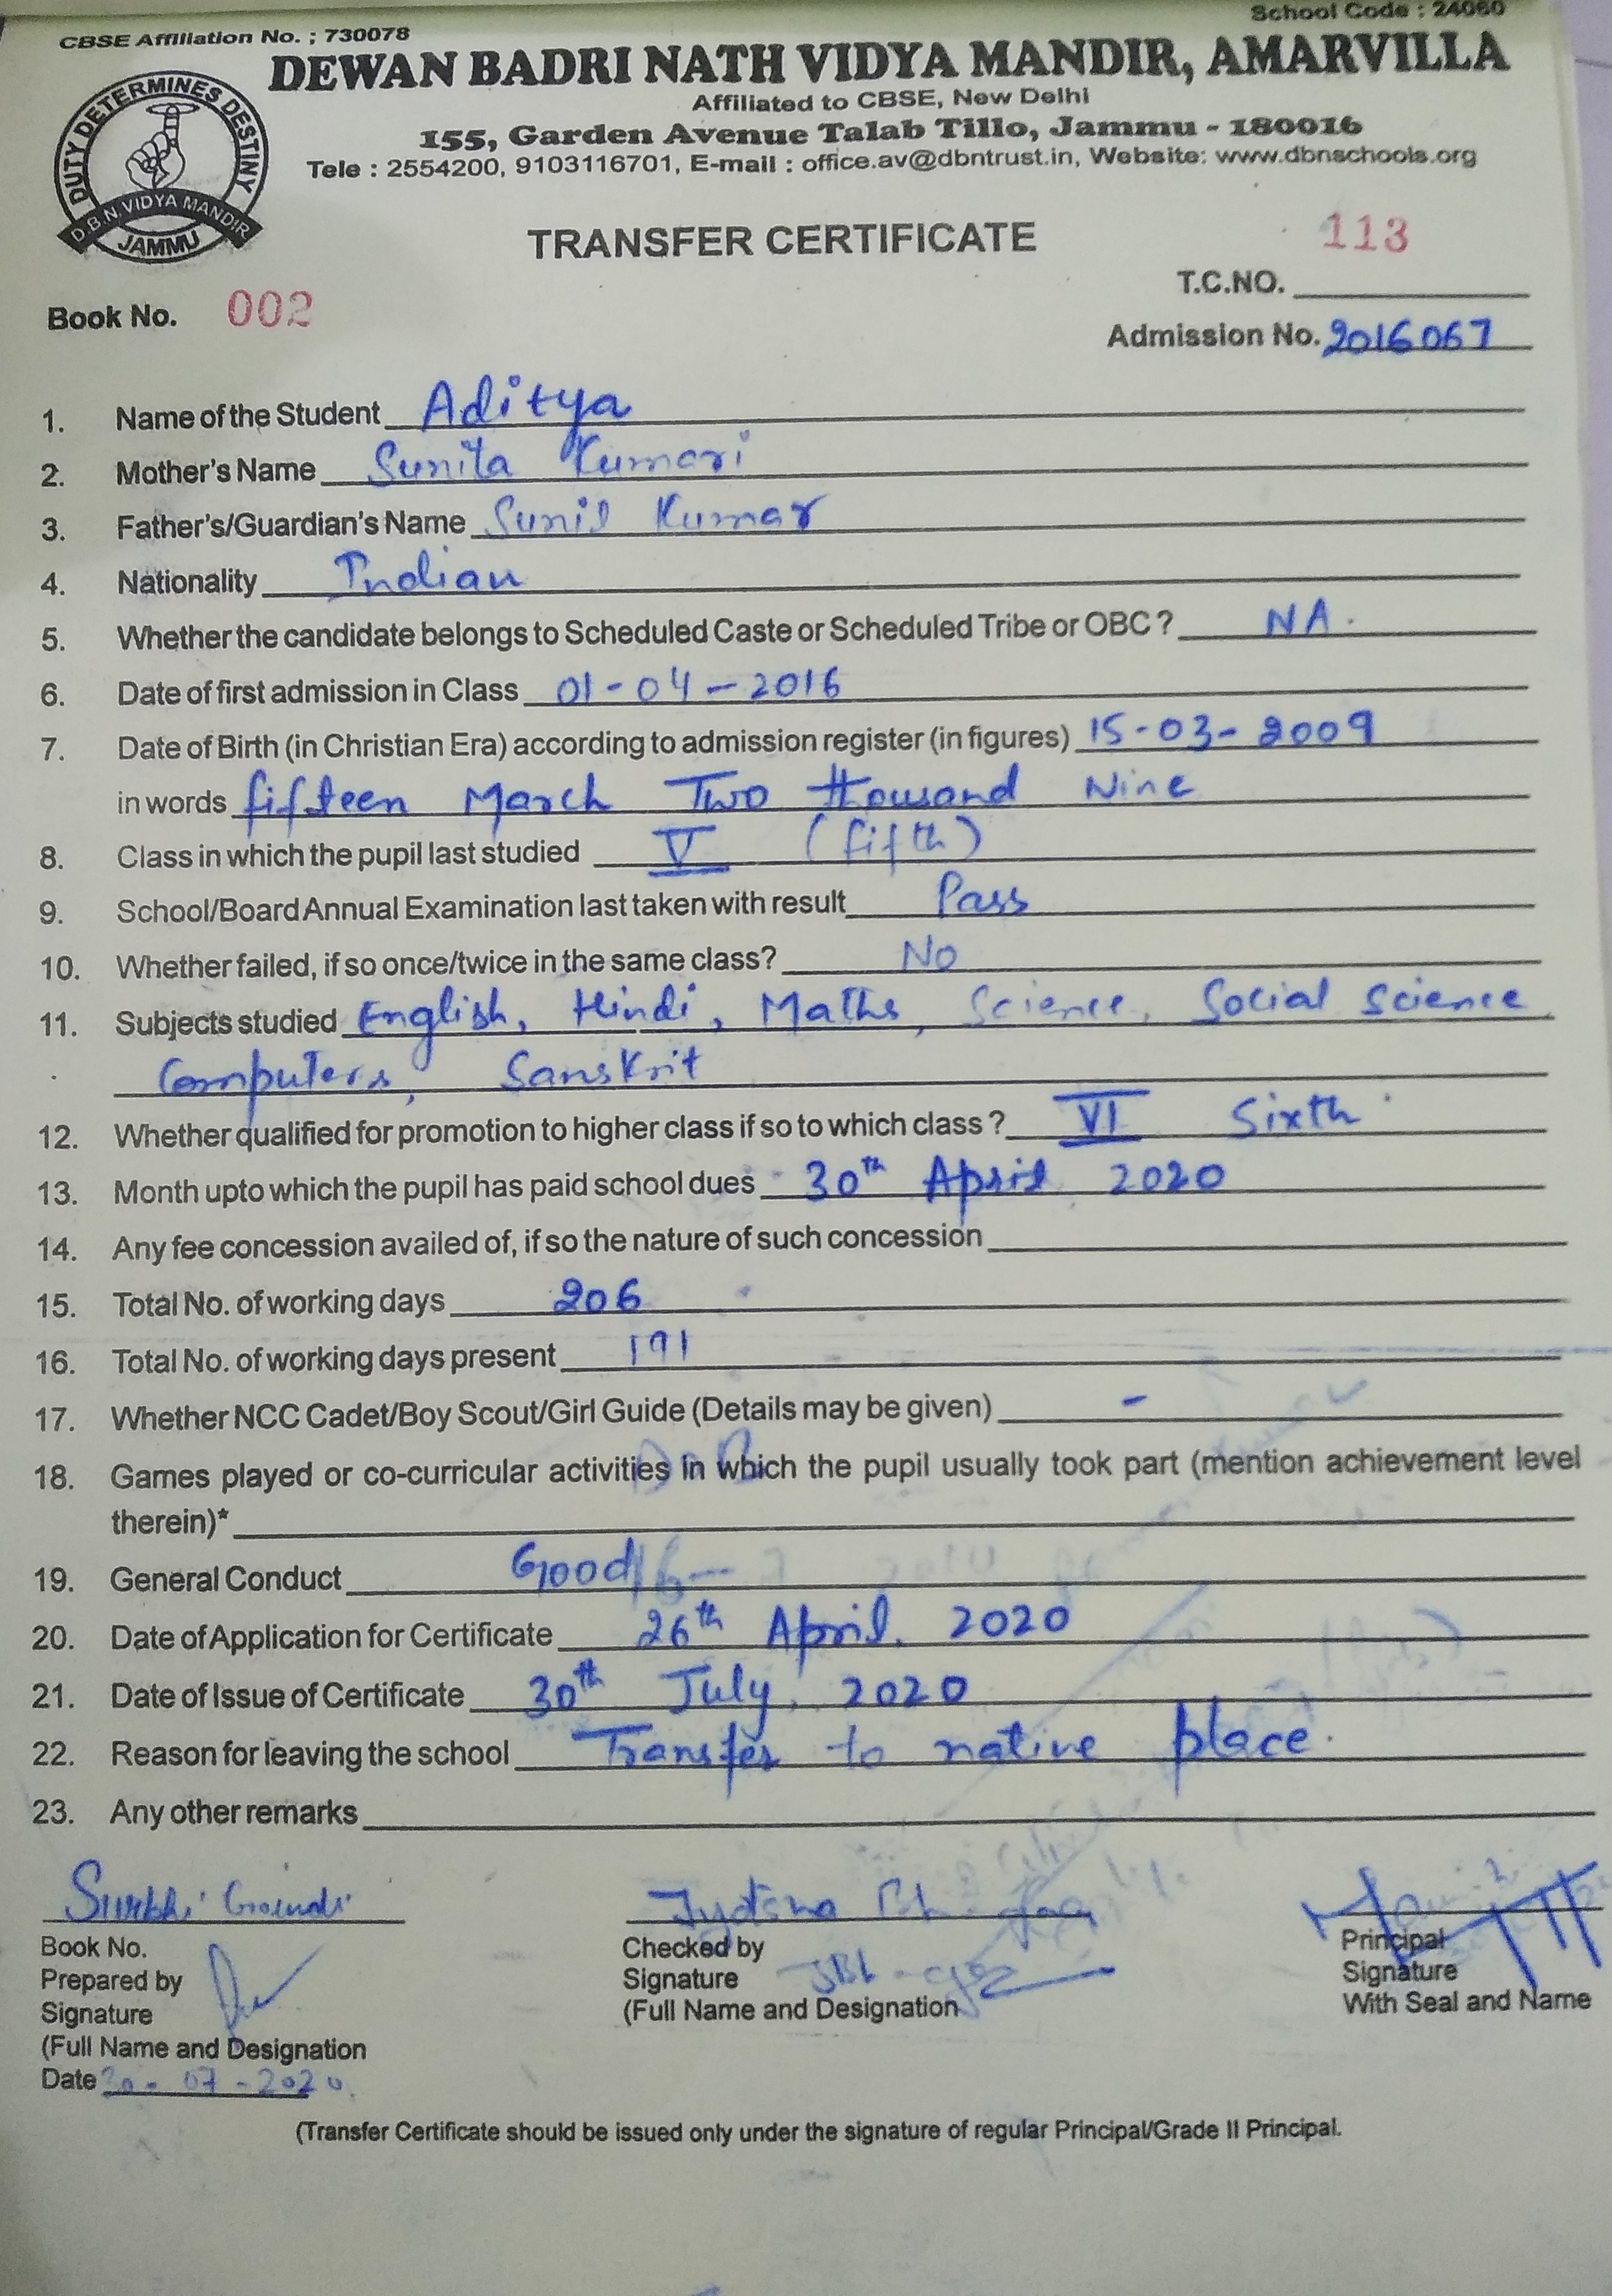 School Code : 24060
CBSE Affiliation No. ; 730078
DEWAN BADRI NATH VIDYA MANDIR, AMARVILLA
Affiliated to CBSE, New Delhi
155, Garden Avenue Talab Tillo, Jammu - 180016
Tele : 2554200, 9103116701, E-mail : office.av@dbntrust.in, Website: www.dbnschools.org
DUTY DETERMINES DESTINY
D.B.N.VIDYA MANDIR
JAMMU
TRANSFER CERTIFICATE
113
T.C.NO.
Book No. 002
Admission No. 2016067
1. Name of the Student Aditya
2. Mother's Name Sunita Kumari
3. Father's/Guardian's Name Sunil Kumar
4. Nationality Indian
5. Whether the candidate belongs to Scheduled Caste or Scheduled Tribe or OBC ? NA.
6. Date of first admission in Class 01-04-2016
7. Date of Birth (in Christian Era) according to admission register (in figures) 15-03-2009
in words fifteen March Two thousand Nine
8. Class in which the pupil last studied V (fifth)
9. School/Board Annual Examination last taken with result Pass
10. Whether failed, if so once/twice in the same class? No
11. Subjects studied English, Hindi, Maths, Science, Social Science
Computers, Sanskrit
12. Whether qualified for promotion to higher class if so to which class ? VI Sixth
13. Month upto which the pupil has paid school dues 30th April 2020
14. Any fee concession availed of, if so the nature of such concession
15. Total No. of working days 206
16. Total No. of working days present 191
17. Whether NCC Cadet/Boy Scout/Girl Guide (Details may be given) -
18. Games played or co-curricular activities in which the pupil usually took part (mention achievement level
therein)*
19. General Conduct Good
20. Date of Application for Certificate 26th April, 2020
21. Date of Issue of Certificate 30th July, 2020
22. Reason for leaving the school Transfer to native place.
23. Any other remarks
Surbhi
Jyotsna
Book No.
Prepared by
Signature
(Full Name and Designation
Date 30-07-2020
Checked by
Signature
(Full Name and Designation
Principal
Signature
With Seal and Name
(Transfer Certificate should be issued only under the signature of regular Principal/Grade II Principal.